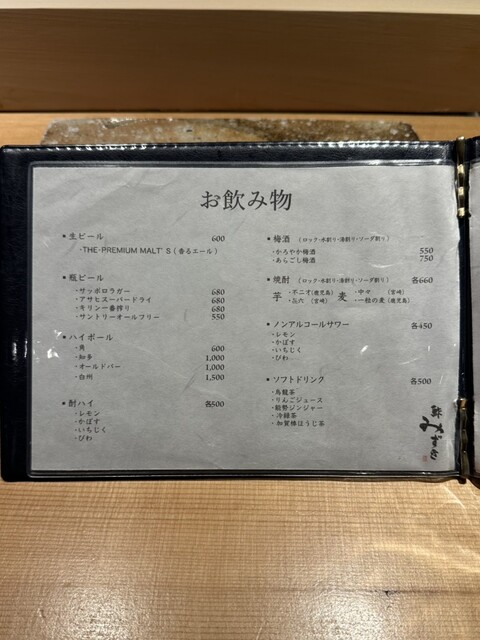 お飲み物
・生ビール 600
・THE・PREMIUM MALT'S(香るエール)
・瓶ビール
・サッポロラガー 680
・アサヒスーパードライ 680
・キリン一番搾り 680
・サントリーオールフリー 550
・ハイボール
・角 600
・知多 1,000
・オールドパー 1,000
・白州 1,500
・酎ハイ 各500
・レモン
・かぼす
・いちじく
・びわ
・梅酒 (ロック・水割り・湯割り・ソーダ割り)
・かろやか梅酒 550
・あらごし梅酒 750
・焼酎 (ロック・水割り・湯割り・ソーダ割り) 各660
芋 ・不二才(鹿児島) 麦 ・中々 (宮崎)
・㐂六 (宮崎) ・一粒の麦(鹿児島)
・ノンアルコールサワー 各450
・レモン
・かぼす
・いちじく
・びわ
・ソフトドリンク 各500
・烏龍茶
・りんごジュース
・能勢ジンジャー
・冷緑茶
・加賀棒ほうじ茶